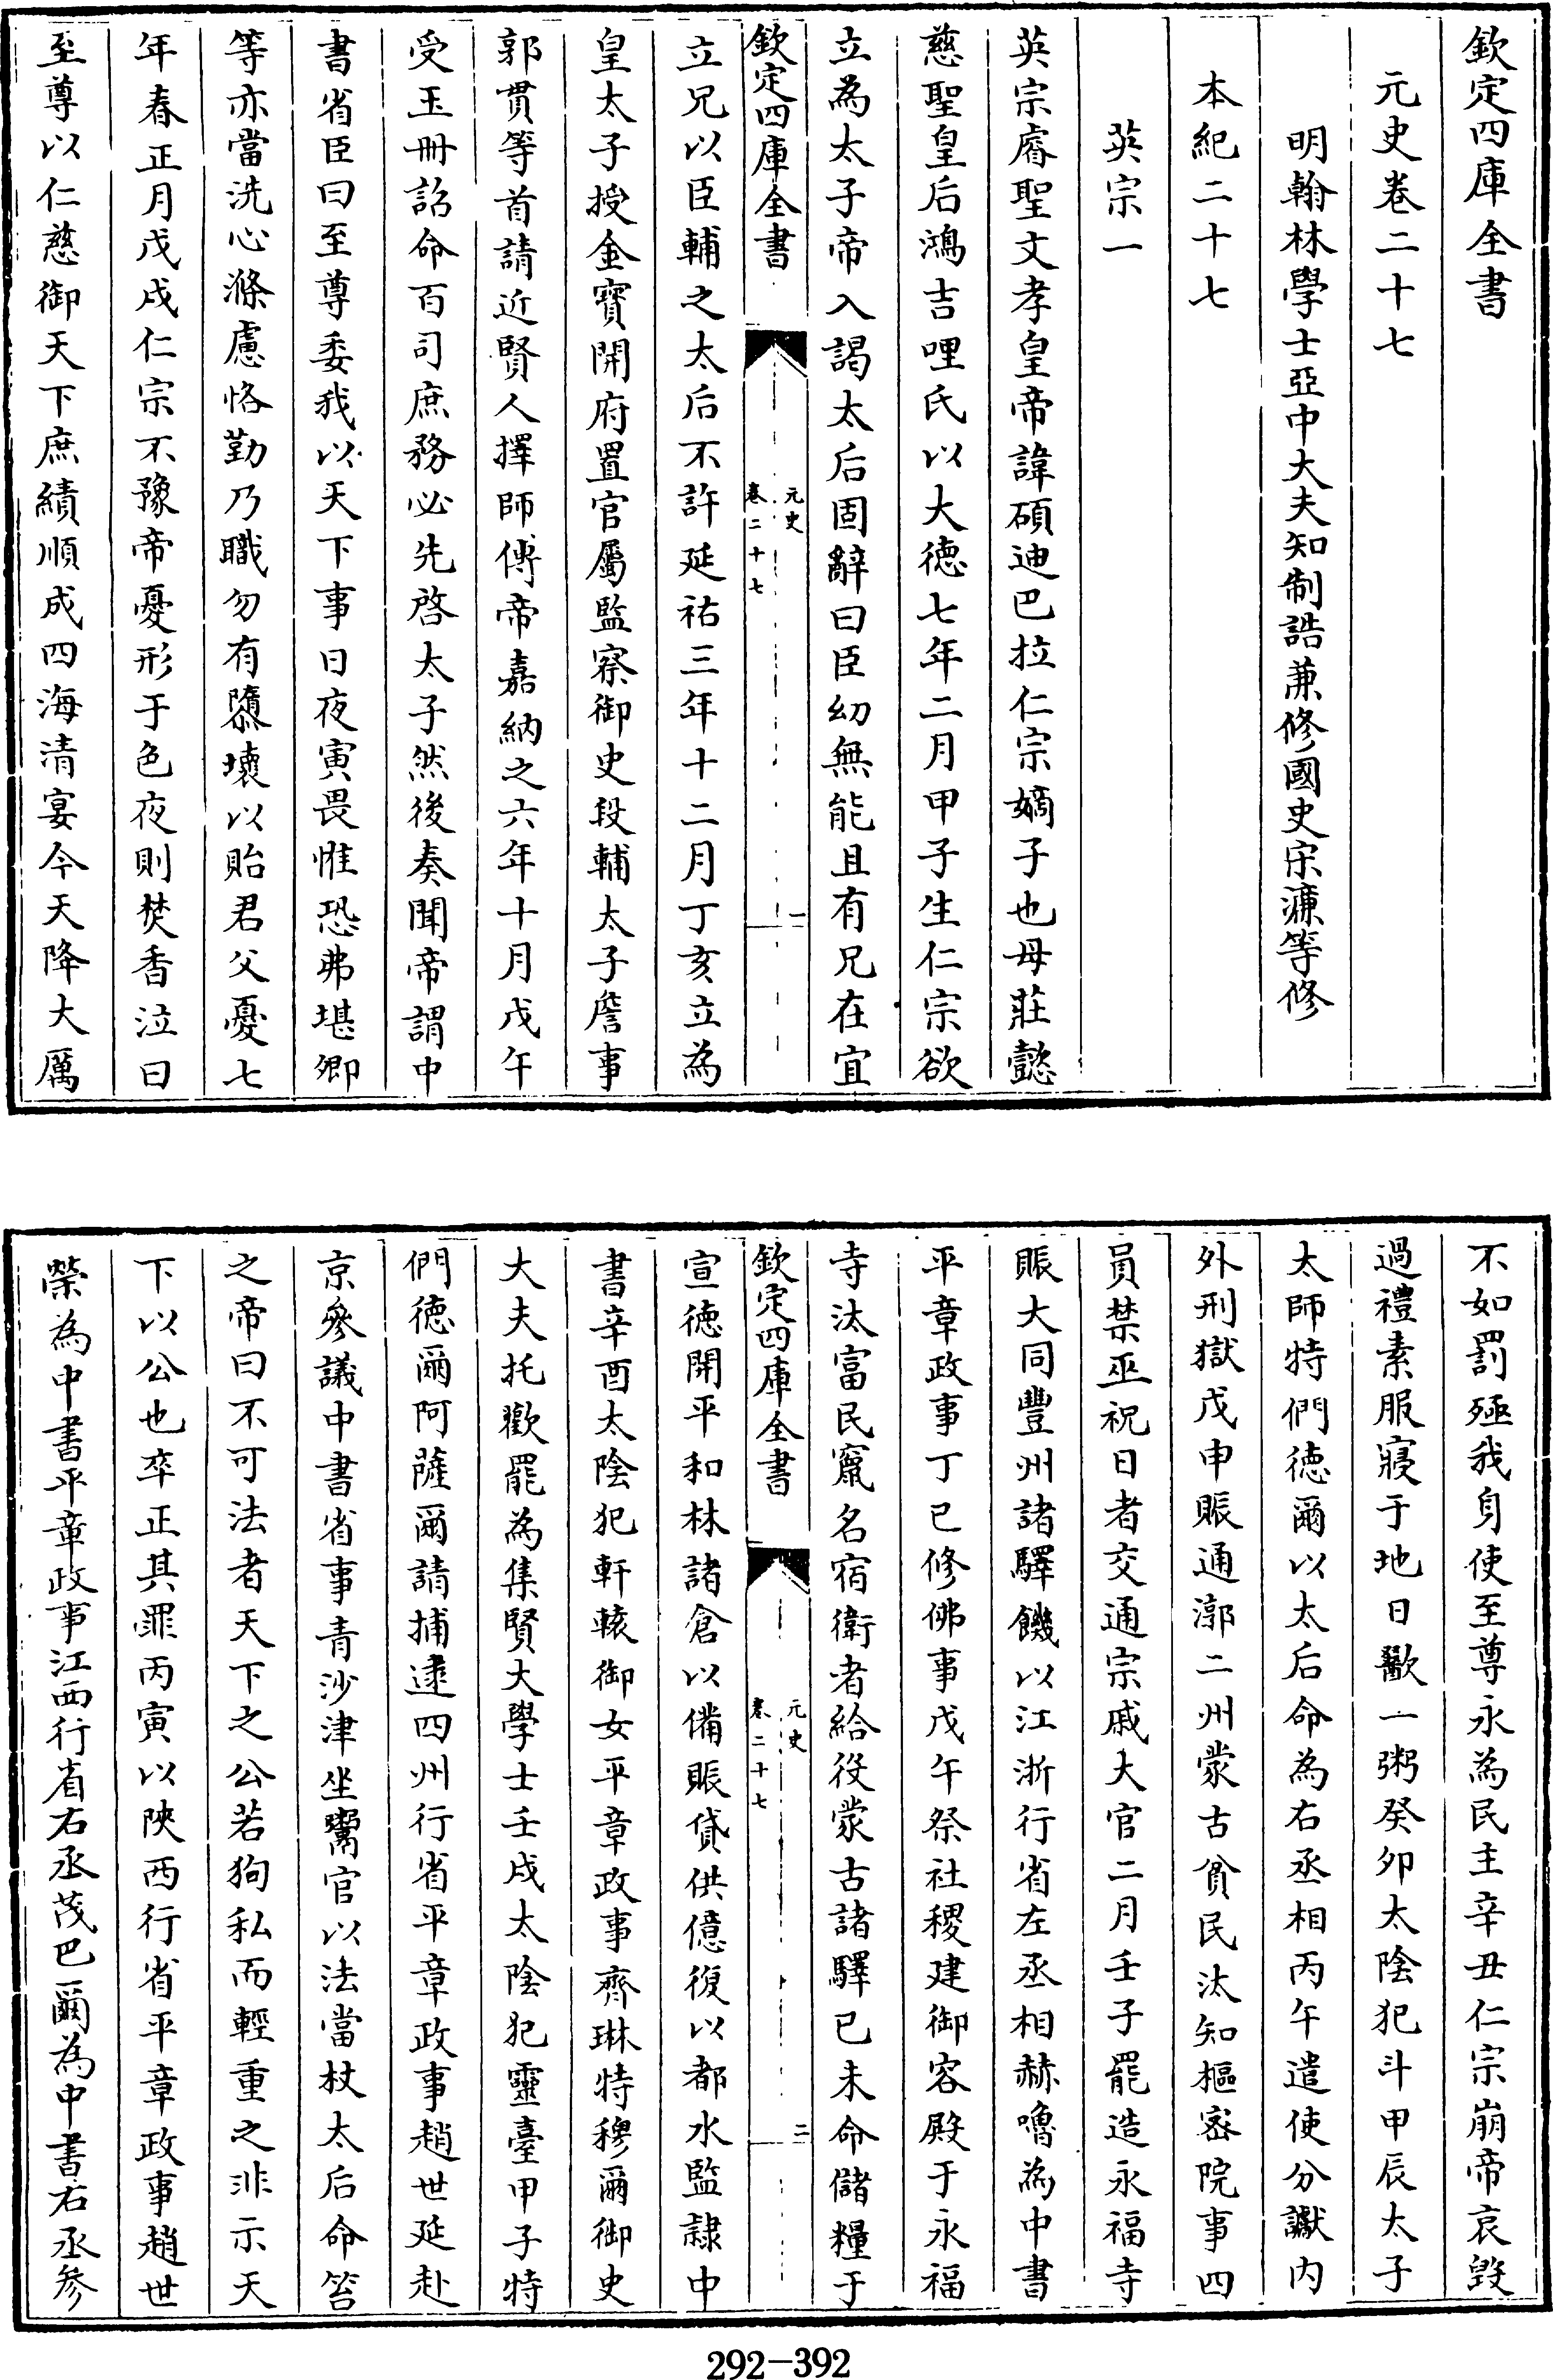 欽定四庫全書
元史卷二十七
明翰林學士亞中大夫知制誥兼修國史宋濂等修
本紀二十七
英宗一
英宗睿聖文孝皇帝諱碩迪巴拉仁宗嫡子也母莊懿
慈聖皇后鴻吉哩氏以大德七年二月甲子生仁宗欲
立為太子帝入謁太后固辭曰臣幼無能且有兄在宜
欽定四庫全書
元史
卷二十七
一
立兄以臣輔之太后不許延祐三年十二月丁亥立為
皇太子授金寶開府置官屬監察御史段輔太子詹事
郭貫等首請近賢人擇師傅帝嘉納之六年十月戊午
受玉冊詔命百司庶務必先啓太子然後奏聞帝謂中
書省臣曰至尊委我以天下事日夜寅畏惟恐弗堪卿
等亦當洗心滌慮恪勤乃職勿有隳壞以貽君父憂七
年春正月戊戌仁宗不豫帝憂形于色夜則焚香泣曰
至尊以仁慈御天下庶績順成四海清宴今天降大厲
不如罰殛我身使至尊永為民主辛丑仁宗崩帝哀毀
過禮素服寢于地日歠一粥癸卯太陰犯斗甲辰太子
太師特們德爾以太后命為右丞相丙午遣使分讞内
外刑獄戊申賑通漷二州蒙古貧民汰知樞密院事四
員禁巫祝日者交通宗戚大官二月壬子罷造永福寺
賑大同豐州諸驛饑以江浙行省左丞相赫嚕為中書
平章政事丁巳修佛事戊午祭社稷建御容殿于永福
寺汰富民竄名宿衛者給役蒙古諸驛已未命儲糧于
欽定四庫全書
元史
卷二十七
二
宣德開平和林諸倉以備賑貸供億復以都水監隷中
書辛酉太陰犯軒轅御女平章政事齊琳特穆爾御史
大夫托歡罷為集賢大學士壬戌太陰犯靈臺甲子特
們德爾阿薩爾請捕逮四川行省平章政事趙世延赴
京參議中書省事青沙津坐鬻官以法當杖太后命笞
之帝曰不可法者天下之公若狥私而輕重之非示天
下以公也卒正其罪丙寅以陜西行省平章政事趙世
榮為中書平章政事江西行省右丞茂巴爾為中書右丞參
292-392